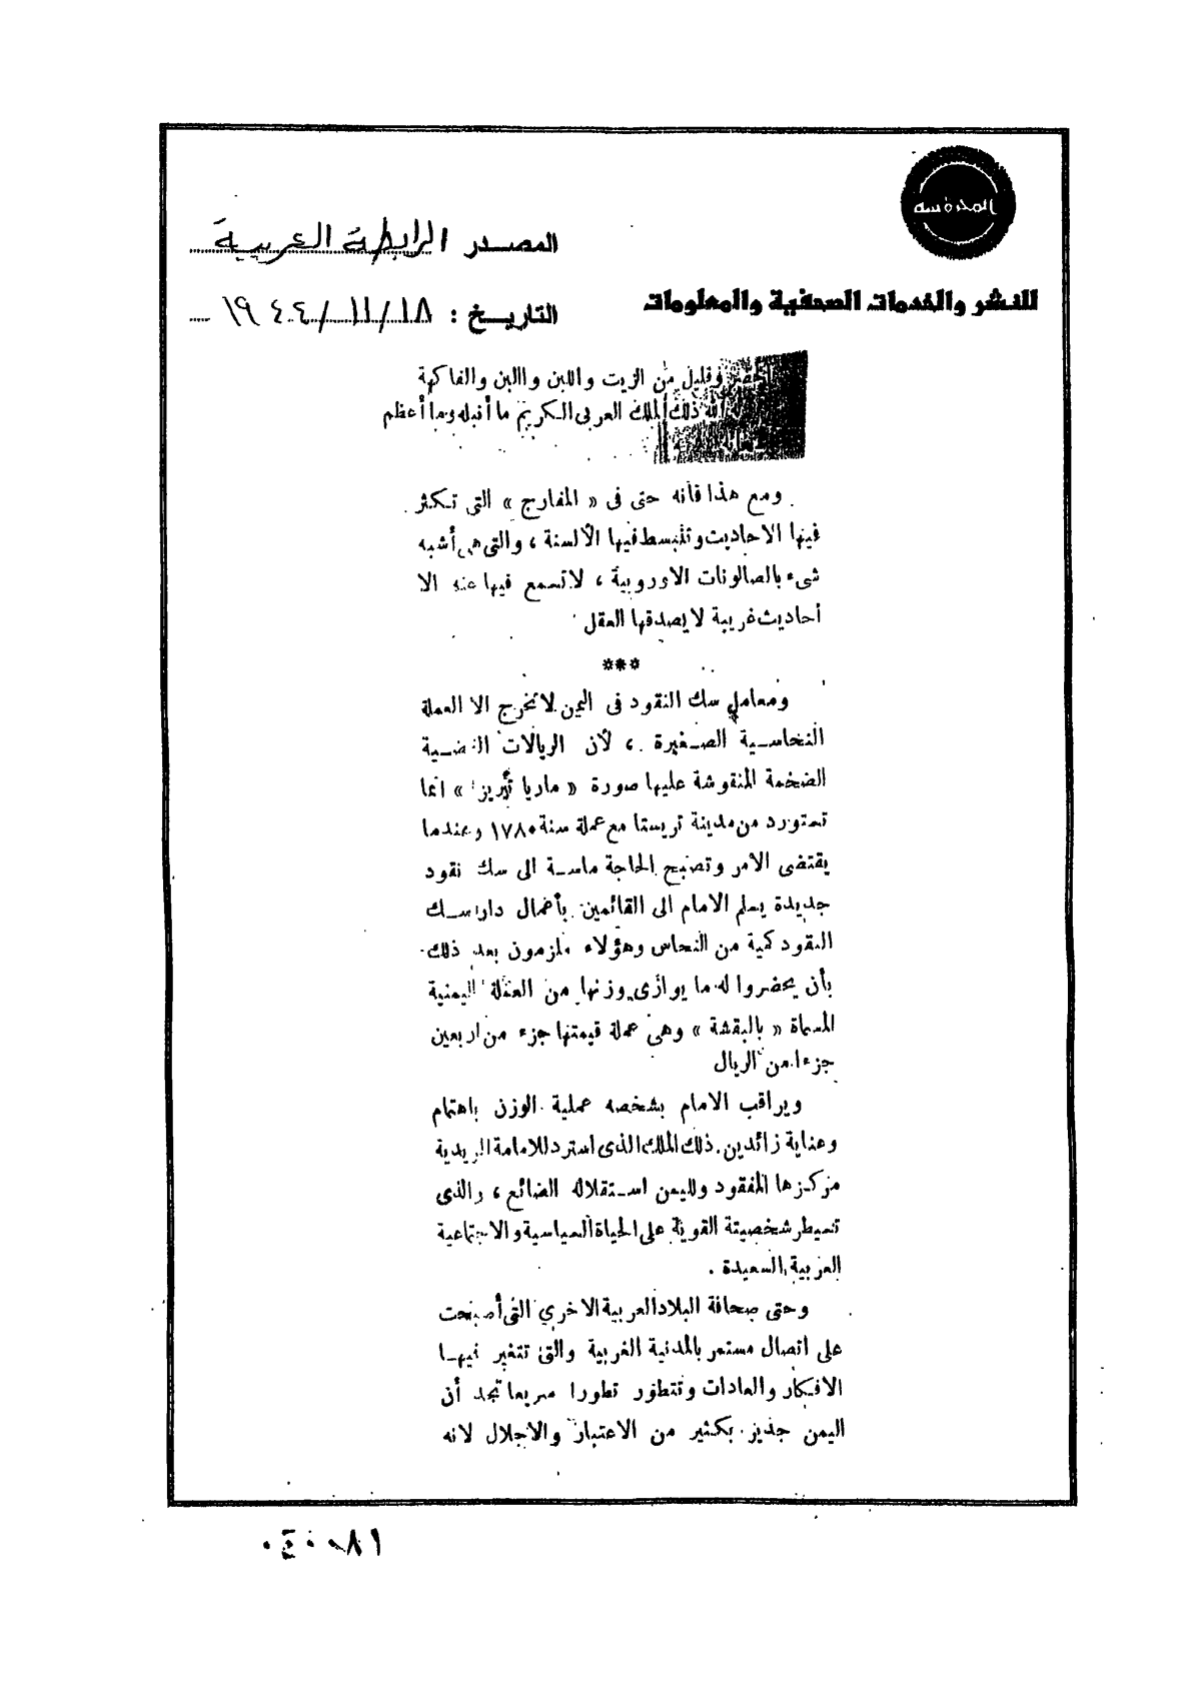 المحروسة
المصدر الرابطة العربية
للنشر والخدمات الصحفية والمعلومات
التاريخ : ١٨/١١/١٩٤٤
وقليل من الزيت واللبن واالبن والفاكهة
الله ذلك الملك العربى الكريم ما أنبله وما أعظم
ومع هذا فانه حتى فى « المفارج » التى تكثر
فيها الاحاديث وتنبسط فيها الألسنة ، والتى هى أشبه
شىء بالصالونات الاوروبية ، لا تسمع فيها عنه الا
أحاديث غريبة لا يصدقها العقل
***
ومعامل سك النقود فى اليمن لا تخرج الا العملة
النحاسية الصغيرة ، لأن الريالات الفضية
الضخمة المنقوشة عليها صورة « ماريا تيريزا » انما
تستورد من مدينة تريستا مع عملة سنة ١٧٨٠ وعندما
يقتضى الامر وتصبح الحاجة ماسة الى سك نقود
جديدة يسلم الامام الى القائمين بأعمال دار سك
النقود كمية من النحاس وهؤلاء ملزمون بعد ذلك
بأن يحضروا له ما يوازى وزنها من العملة اليمنية
المسماة « بالبقشة » وهى عملة قيمتها جزء من اربعين
جزءا من الريال
ويراقب الامام بشخصه عملية الوزن باهتمام
وعناية زائدين . ذلك الملك الذى استرد للامامة الزيدية
مركزها المفقود ولليمن استقلاله الضائع ، والذى
تسيطر شخصيتة القوية على الحياة السياسية والاجتماعية
العربية السعيدة .
وحتى صحافة البلاد العربية الاخري التى أصبحت
على اتصال مستمر بالمدنية الغربية والتى تتغير فيها
الافكار والعادات وتتطور تطورا سريعا تجد أن
اليمن جدير بكثير من الاعتبار والاجلال لانه